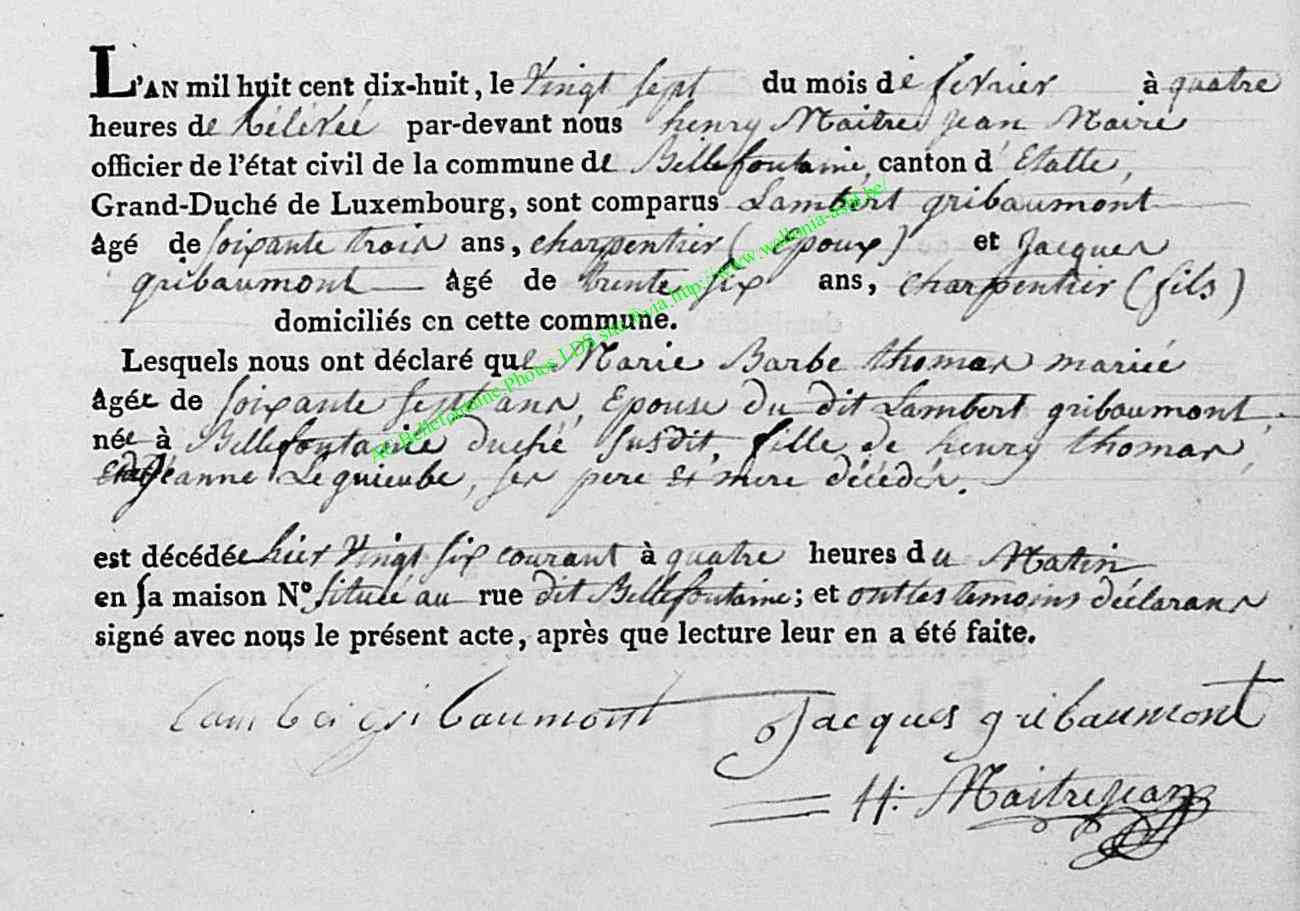 L'AN mil huit cent dix-huit, le Vingt sept du mois de fevrier à quatre
heures de Rélévée par-devant nous henry Maitre jean Maire
officier de l'état civil de la commune de Bellefontaine, canton d'Etalle,
Grand-Duché de Luxembourg, sont comparus Lambert gribaumont
âgé de soixante trois ans, charpentier (Epoux) et Jacques
gribaumont âgé de trente six ans, charpentier (fils)
domiciliés en cette commune.
Lesquels nous ont déclaré que Marie Barbe thomas mariée
âgée de soixante sept ans, Epouse du dit Lambert gribaumont,
née à Bellefontaine duché susdit, fille de henry thomas,
jeanne, ses pere et mere décédés.
est décédée hier Vingt six courant à quatre heures du Matin
en sa maison N° située au rue dit Bellefontaine; et ont les temoins déclarans
signé avec nous le présent acte, après que lecture leur en a été faite.
Lamber gribaumont Jacques gribaumont
H: Maitrejean
AC Bellefontaine Photos LDS site via http://www.wallonia-asbl.be/